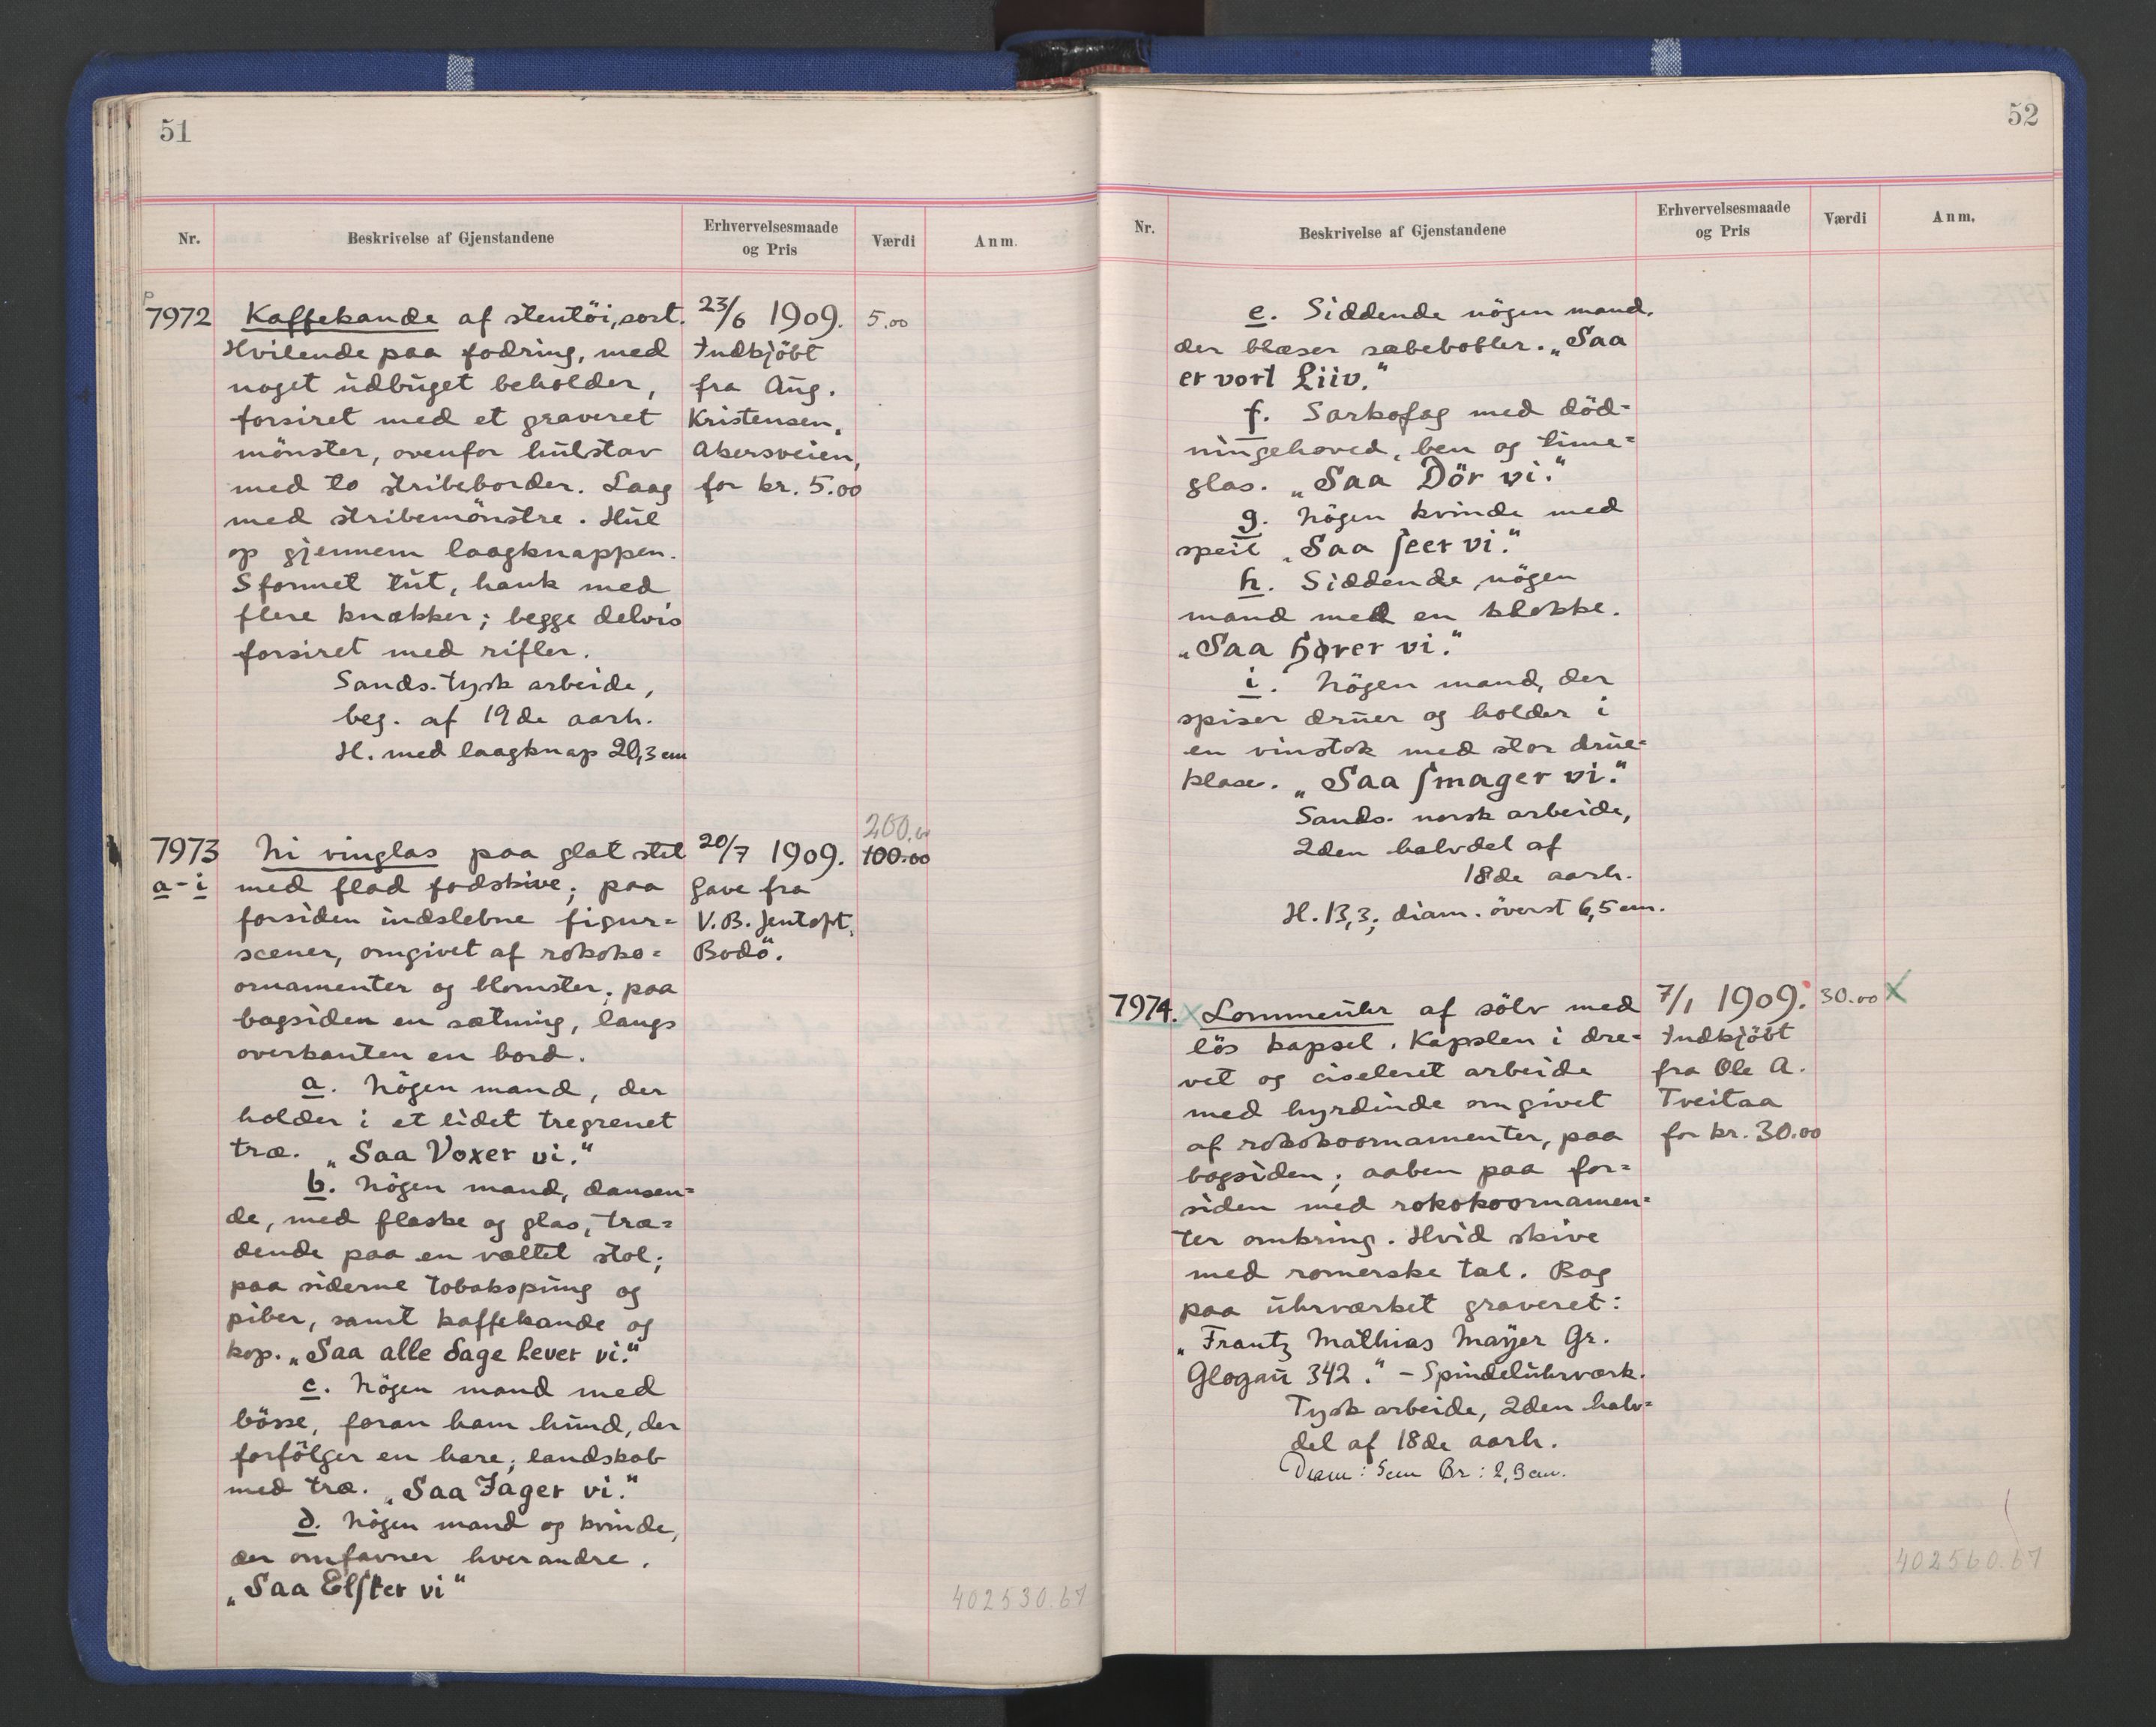 51
Nr.
Beskrivelse af Gjenstandene
Erhvervelsesmaade
og Pris
Værdi
Anm.
7972
Kaffekande af stentöi, sort.
Hvilende paa fodring, med
noget udbuget beholder,
forsiret med et graveret
mönster, ovenfor hulstav
med to stribeborder. Laag
med stribemönstre. Hul
op gjennem laagknappen.
S formet tut, hank med
flere knækker; begge delvis
forsiret med rifler.
Sands. tysk arbeide,
beg. af 19de aarh.
H. med laagknap 20,3 cm
23/6 1909.
Indkjöbt
fra Aug.
Kristensen,
Akersveien,
for kr. 5.00
5.00
7973
a-i
Ni vinglas paa glat stet
med flad fodskive; paa
forsiden indslebne figur=
scener, omgivet af rokoko=
ornamenter og blomster; paa
bagsiden en sætning, langs
overkanten en bord.
a. Nögen mand, der
holder i et lidet tregrenet
træ. „Saa Voxer vi.“
b. Nögen mand, dansen=
de, med flaske og glas, træ=
dende paa en væltet stol;
paa siderne tobakspung og
piber, samt kaffekande og
kop. „Saa alle dage Lever vi.“
c. Nögen mand med
bösse, foran ham hund, der
forfölger en hare; landskab
med træ. „Saa Jager vi.“
d. Nögen mand og kvinde,
der omfavner hverandre.
„Saa Elsker vi“
20/7 1909.
Gave fra
V. B. Jentoft,
Bodö.
200.
100.00
402530.67
52
Nr.
Beskrivelse af Gjenstandene
Erhvervelsesmaade
og Pris
Værdi
Anm.
e. Siddende nögen mand,
der blæser sæbebobler. „Saa
er vort Liiv.“
f. Sarkofag med död=
ningehoved, ben og time=
glas. „Saa Dör vi.“
g. Nögen kvinde med
speil „Saa seer vi.“
h. Siddende nögen
mand med en klokke.
„Saa hører vi.“
i. Nögen mand, der
spiser druer og holder i
en vinstok med stor drue=
klase. „Saa smager vi.“
Sands. norsk arbeide,
2den halvdel af
18de aarh.
H. 13,3; diam. överst 6,5 cm.
7974.
Lommeuhr af sölv med
lös kapsel. Kapslen i dre=
vet og ciseleret arbeide
med hyrdinde omgivet
af rokokoornamenter, paa
bagsiden; aaben paa for=
siden med rokokoornamen=
ter omkring. Hvid skive
med romerske tal. Bag
paa uhrværket graveret:
„Frantz Mathias Mayer Gr.
Glogau 342.“ – Spindeluhrværk.
Tysk arbeide, 2den halv=
del af 18de aarh.
Diam: 5cm Br: 2,9cm.
7/1 1909.
Indkjöbt
fra Ole A.
Tveitaa
for kr. 30.00
30.00 X
402560.67